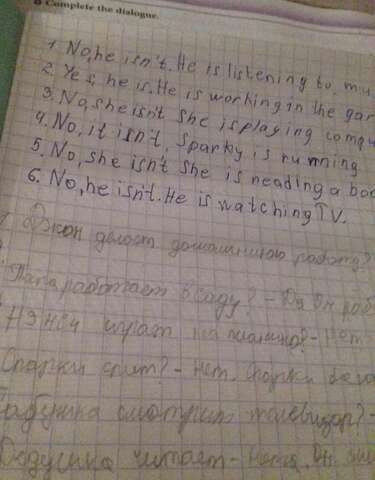 Complete the dialogue.
1. No, he isn't. He is listening to mu
2. Yes, he is. He is working in the gar
3. No, she isn't She is playing compu
4. No, it isn't, Sparky is running
5. No, she isn't She is reading a boo
6. No, he isn't. He is watching TV.
Джон делает домашнюю работу?
Папа работает в саду? - Да Он раб
Нэнси играт на пианино? - Нет
Спарки спит? - Нет, Спарки бега
Бабушка смотрит телевизор? -
Дедушка читает - Нет. Он